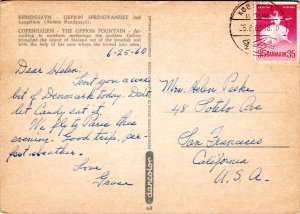 KØBENHAVN GEFION SPRINGVANDET ved
Langelinie (Anders Bundgaard).
COPENHAGEN - THE GEFION FOUNTAIN - Ac-
cording to northern mythology the goddess Gefion
ploughed the island of Sealand out of the Swedish soil
with the help of her sons whom she turned into oxen.
6-25-60
Dear Helen:
Sent you a wee
bit of Denmark today. Dont
let Candy eat it
We fly to Paris this
evening. Good trip, per-
fect weather.
Love
Grace
dancolor
Mrs. Helen Parke
48 Potelo Ave
San Francisco
California
U. S. A.
DANMARK
35 35